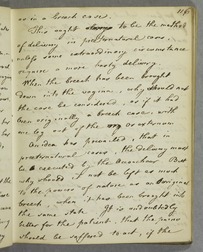 as in a breech case.
This ought always to be the method
of delivery in preternatural cases,
unless some extraordinary circumstance
require a more hasty delivery.
When the breech has been brought
down into the vagina, why should not
the case be considered, as if it had
been originally a breech case, with
one leg out of the os externum
An idea has prevailed, that in
preternatural cases, the delivery must
be executed by the Accoucheur. But
why should it not be left as much
to the powers of nature as an original
breech, when it has been brought into
the same state. It is undoubtedly
better for the patient, that the pains
should be suffered to act, if the